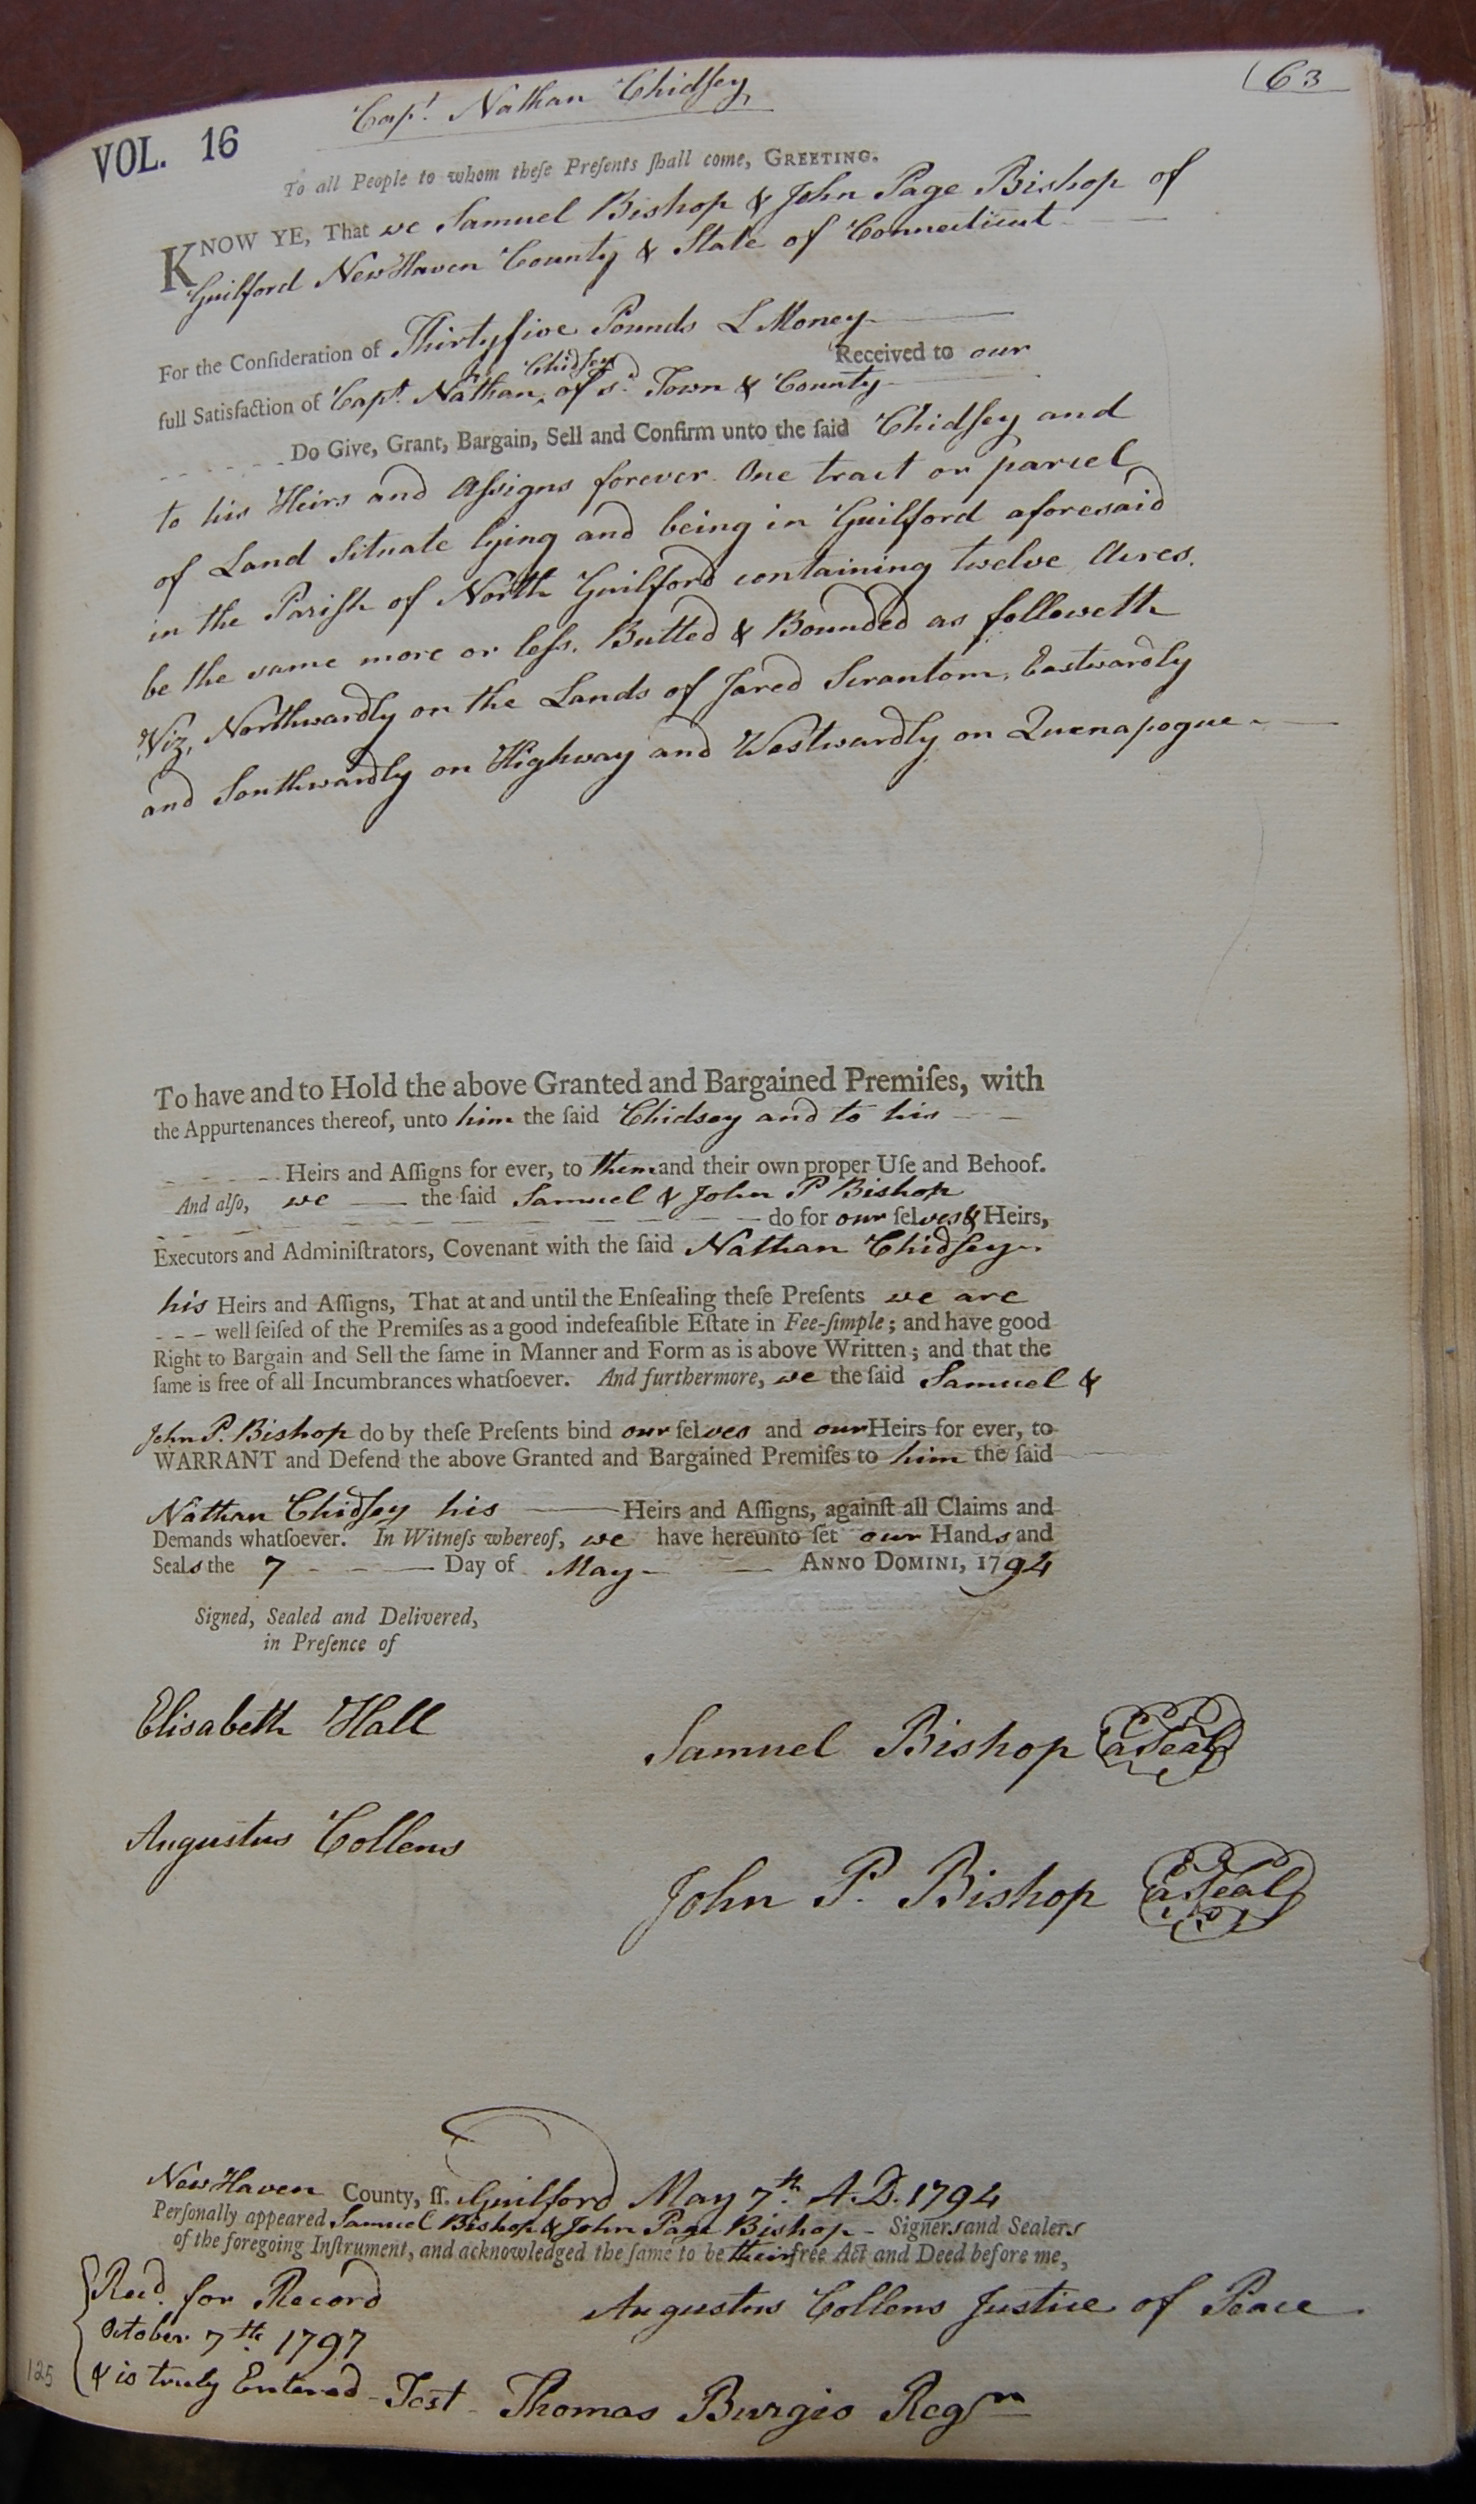 Capt. Nathan Chidsey
63
VOL. 16
To all People to whom theſe Preſents ſhall come, GREETING.
KNOW YE, That we Samuel Bishop & John Page Bishop of
Guilford New Haven County & State of Connecticut
For the Conſideration of Thirtyfive Pounds L Money
Received to our
Chidsey
full Satisfaction of Capt. Nathan of sd. Town & County
Do Give, Grant, Bargain, Sell and Confirm unto the ſaid Chidſey and
to his Heirs and Aſsigns forever One tract or parcel
of Land Situate lying and being in Guilford aforesaid
in the Pariſh of North Guilford containing twelve Acres.
be the same more or leſs. Butted & Bounded as followeth
Viz, Northwardly on the Lands of Jared Scrantom, Eastwardly
and Southwardly on Highway and Westwardly on Quenapogue
To have and to Hold the above Granted and Bargained Premiſes, with
the Appurtenances thereof, unto him the ſaid Chidsey and to his
Heirs and Aſſigns for ever, to them and their own proper Uſe and Behoof.
And alſo, we the ſaid Samuel & John P Bishop
do for our ſelves & Heirs,
Executors and Adminiſtrators, Covenant with the ſaid Nathan Chidſey
his Heirs and Aſſigns, That at and until the Enſealing theſe Preſents we are
well ſeiſed of the Premiſes as a good indefeaſible Eſtate in Fee-ſimple; and have good
Right to Bargain and Sell the ſame in Manner and Form as is above Written; and that the
ſame is free of all Incumbrances whatſoever. And furthermore, we the ſaid Samuel &
John P. Bishop do by theſe Preſents bind our ſelves and our Heirs for ever, to
WARRANT and Defend the above Granted and Bargained Premiſes to him the ſaid
Nathan Chidſey his Heirs and Aſſigns, againſt all Claims and
Demands whatſoever. In Witneſs whereof, we have hereunto ſet our Hands and
Seals the 7 Day of May ANNO DOMINI, 1794
Signed, Sealed and Delivered,
in Preſence of
Elisabeth Hall
Samuel Bishop a Seal
Augustus Collens
John P. Bishop a Seal
New Haven County, ſſ. Guilford May 7th. A.D. 1794
Perſonally appeared Samuel Bishop & John Page Bishop - Signers and Sealers
of the foregoing Inſtrument, and acknowledged the ſame to be their free Act and Deed before me,
Recd. for Record
Augustus Collens Justice of Peace
October 7th. 1797
125
& is truly Entered - Test - Thomas Burgis Regr